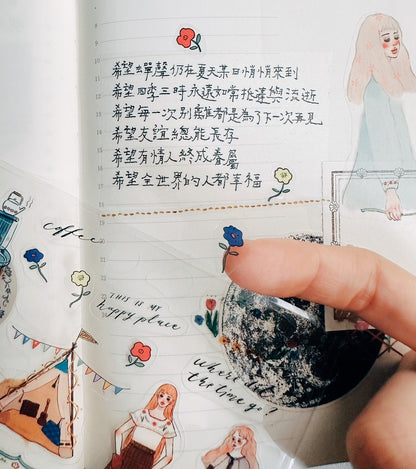 希望蟬聲仍在夏天某日悄悄來到
希望四季三時永遠如常抵達與流逝
希望每一次別離都是為了下一次再見
希望友誼總能長存
希望有情人終成眷屬
希望全世界的人都幸福
coffee
THIS IS MY
happy place
where did
the time go?